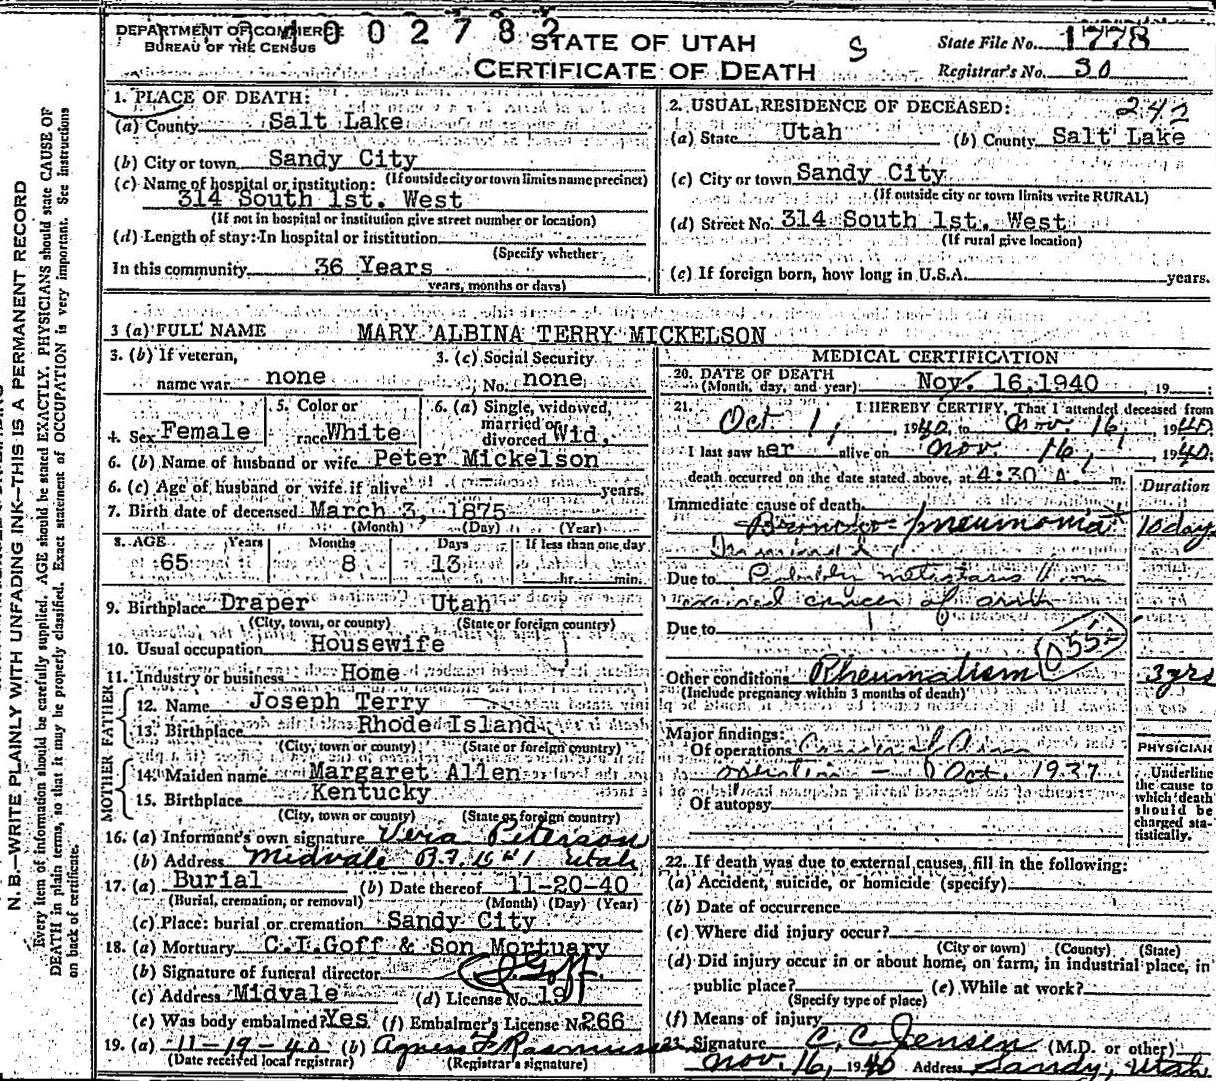 DEPARTMENT OF COMMERCE
BUREAU OF THE CENSUS
1002782
STATE OF UTAH
CERTIFICATE OF DEATH
S
State File No. 1778
Registrar's No. 30
N.B.—WRITE PLAINLY WITH UNFADING INK—THIS IS A PERMANENT RECORD
Every item of information should be carefully supplied. AGE should be stated EXACTLY. PHYSICIANS should state CAUSE OF
DEATH in plain terms, so that it may be properly classified. Exact statement of OCCUPATION is very important. See instructions
on back of certificate.
1. PLACE OF DEATH:
(a) County Salt Lake
(b) City or town Sandy City
(If outside city or town limits name precinct)
(c) Name of hospital or institution:
314 South 1st. West
(If not in hospital or institution give street number or location)
(d) Length of stay: In hospital or institution
(Specify whether
In this community 36 Years
years, months or days)
2. USUAL RESIDENCE OF DECEASED:
242
(a) State Utah (b) County Salt Lake
(c) City or town Sandy City
(If outside city or town limits write RURAL)
(d) Street No. 314 South 1st. West
(If rural give location)
(e) If foreign born, how long in U.S.A. years.
3 (a) FULL NAME MARY ALBINA TERRY MICKELSON
3. (b) If veteran,
name war none
3. (c) Social Security
No. none
4. Sex Female
5. Color or
race White
6. (a) Single, widowed,
married or
divorced Wid,
6. (b) Name of husband or wife Peter Mickelson
6. (c) Age of husband or wife if alive years.
7. Birth date of deceased March 3, 1875
(Month) (Day) (Year)
8. AGE Years Months Days If less than one day
65 8 13 hr. min.
9. Birthplace Draper Utah
(City, town, or county) (State or foreign country)
10. Usual occupation Housewife
11. Industry or business Home
FATHER
12. Name Joseph Terry
13. Birthplace Rhode Island
(City, town or county) (State or foreign country)
MOTHER
14. Maiden name Margaret Allen
15. Birthplace Kentucky
(City, town or county) (State or foreign country)
16. (a) Informant's own signature Vera Peterson
(b) Address Midvale Utah
17. (a) Burial (b) Date thereof 11-20-40
(Burial, cremation, or removal) (Month) (Day) (Year)
(c) Place: burial or cremation Sandy City
18. (a) Mortuary C.I. Goff & Son Mortuary
(b) Signature of funeral director Goff
(c) Address Midvale (d) License No. 197
(e) Was body embalmed? Yes (f) Embalmer's License No. 266
19. (a) 11-19-40 (b) Agnes F Rasmussen
(Date received local registrar) (Registrar's signature)
MEDICAL CERTIFICATION
20. DATE OF DEATH
(Month, day, and year) Nov. 16, 1940 , 19 :
21. I HEREBY CERTIFY, That I attended deceased from
Oct 1, 1940, to Nov. 16, 1940.
I last saw her alive on Nov. 16, 1940;
death occurred on the date stated above, at 4:30 A. m.
Duration
Immediate cause of death
Broncho-pneumonia 10 days
Terminal,
Due to Probably metastasis from
cancer of
Due to
055
Other conditions Rheumatism 3 yrs
(Include pregnancy within 3 months of death)
Major findings:
Of operations
Oct. 1937
Of autopsy
PHYSICIAN
Underline
the cause to
which death
should be
charged sta-
tistically.
22. If death was due to external causes, fill in the following:
(a) Accident, suicide, or homicide (specify)
(b) Date of occurrence
(c) Where did injury occur?
(City or town) (County) (State)
(d) Did injury occur in or about home, on farm, in industrial place, in
public place? (e) While at work?
(Specify type of place)
(f) Means of injury
23. Signature C. C. Jensen (M.D. or other)
Nov. 16, 1940 Address Sandy, Utah